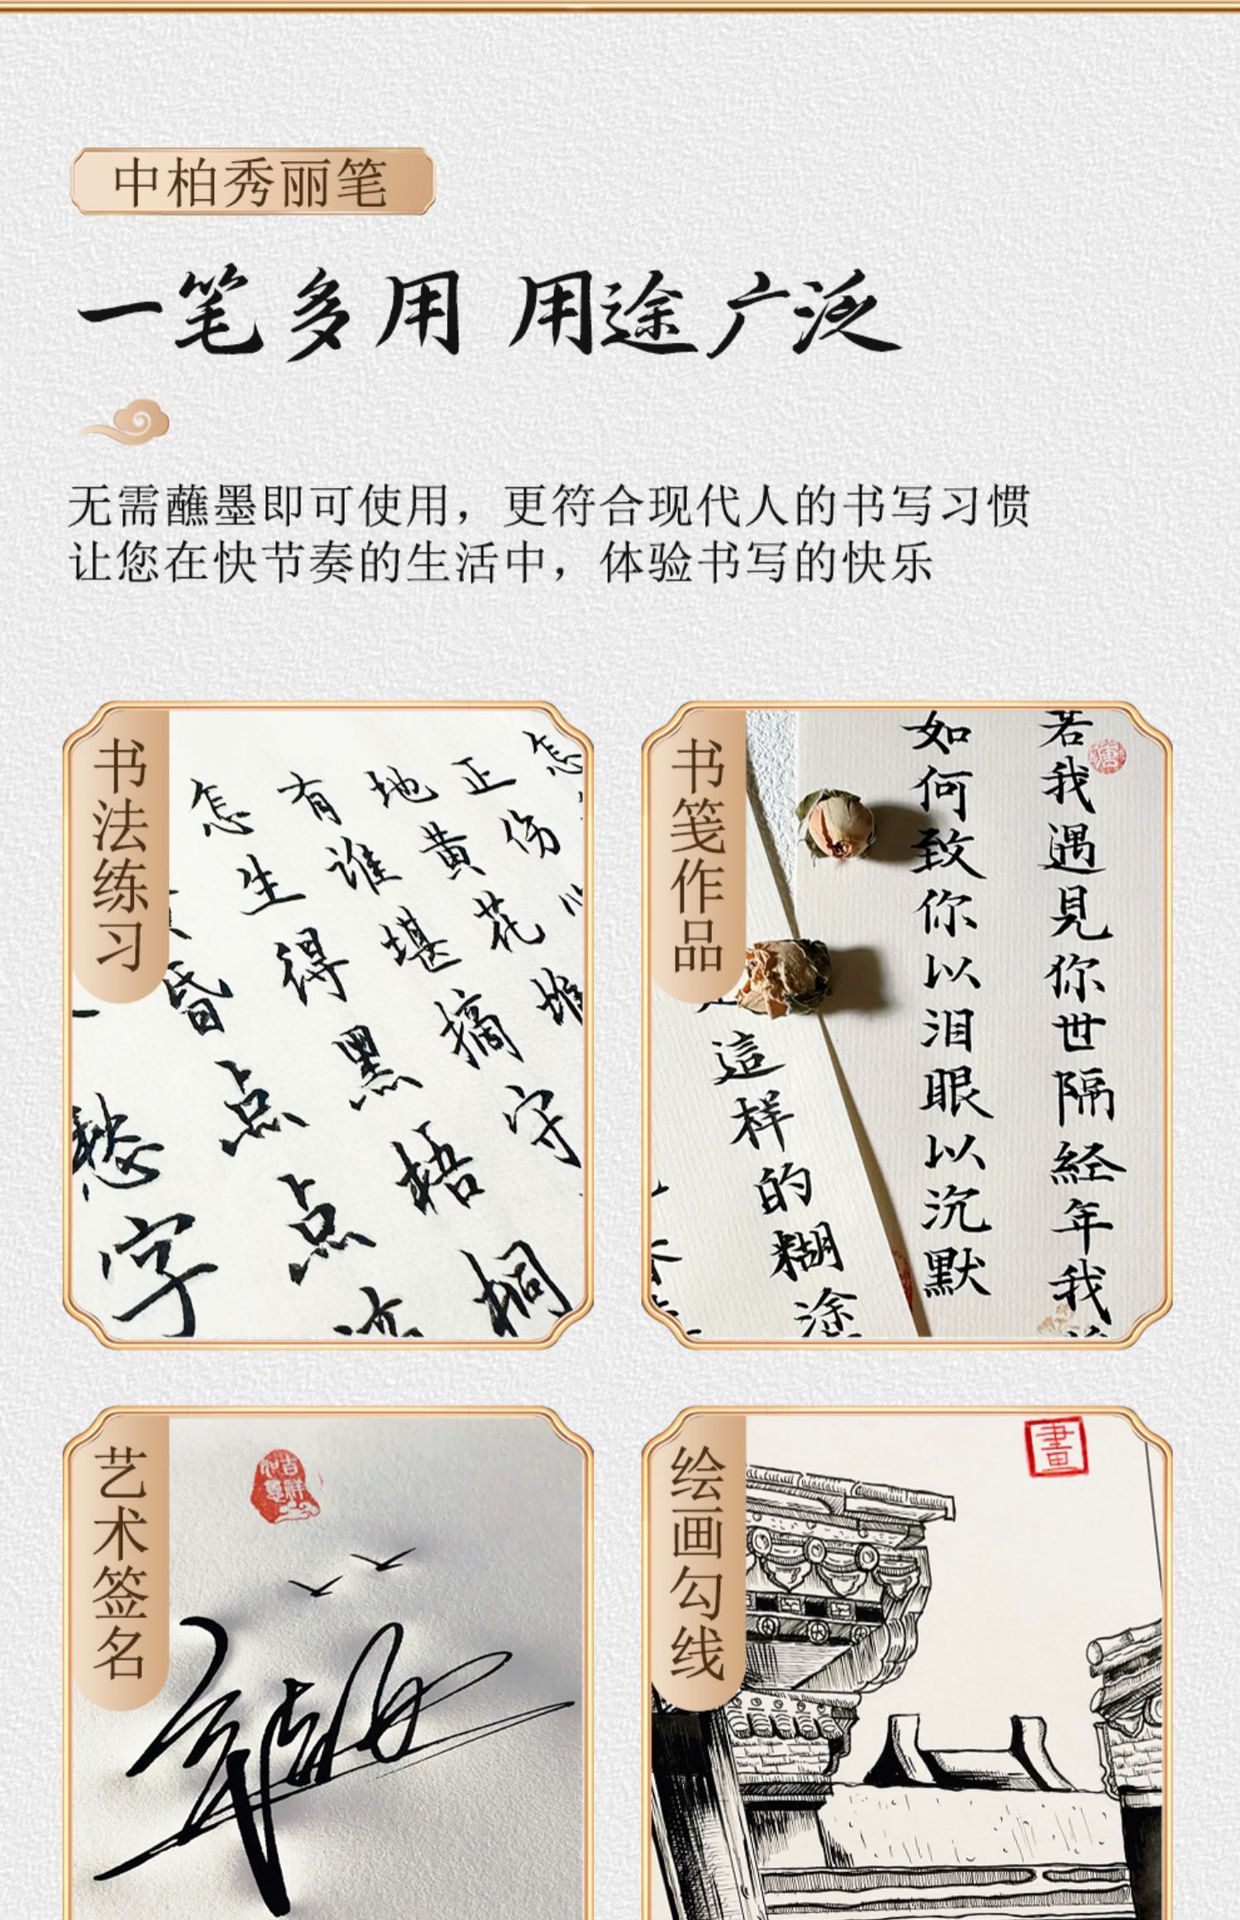 中柏秀丽笔
一笔多用 用途广泛
无需蘸墨即可使用，更符合现代人的书写习惯
让您在快节奏的生活中，体验书写的快乐
书法练习
怎
正伤
堆
地黄花
守
有谁堪摘
梧桐
怎生得黑
昏点点
愁字
书笺作品
若我遇見你世隔经年我
如何致你以泪眼以沉默
這样的糊涂
唐
艺术签名
吉祥
绘画勾线
畫